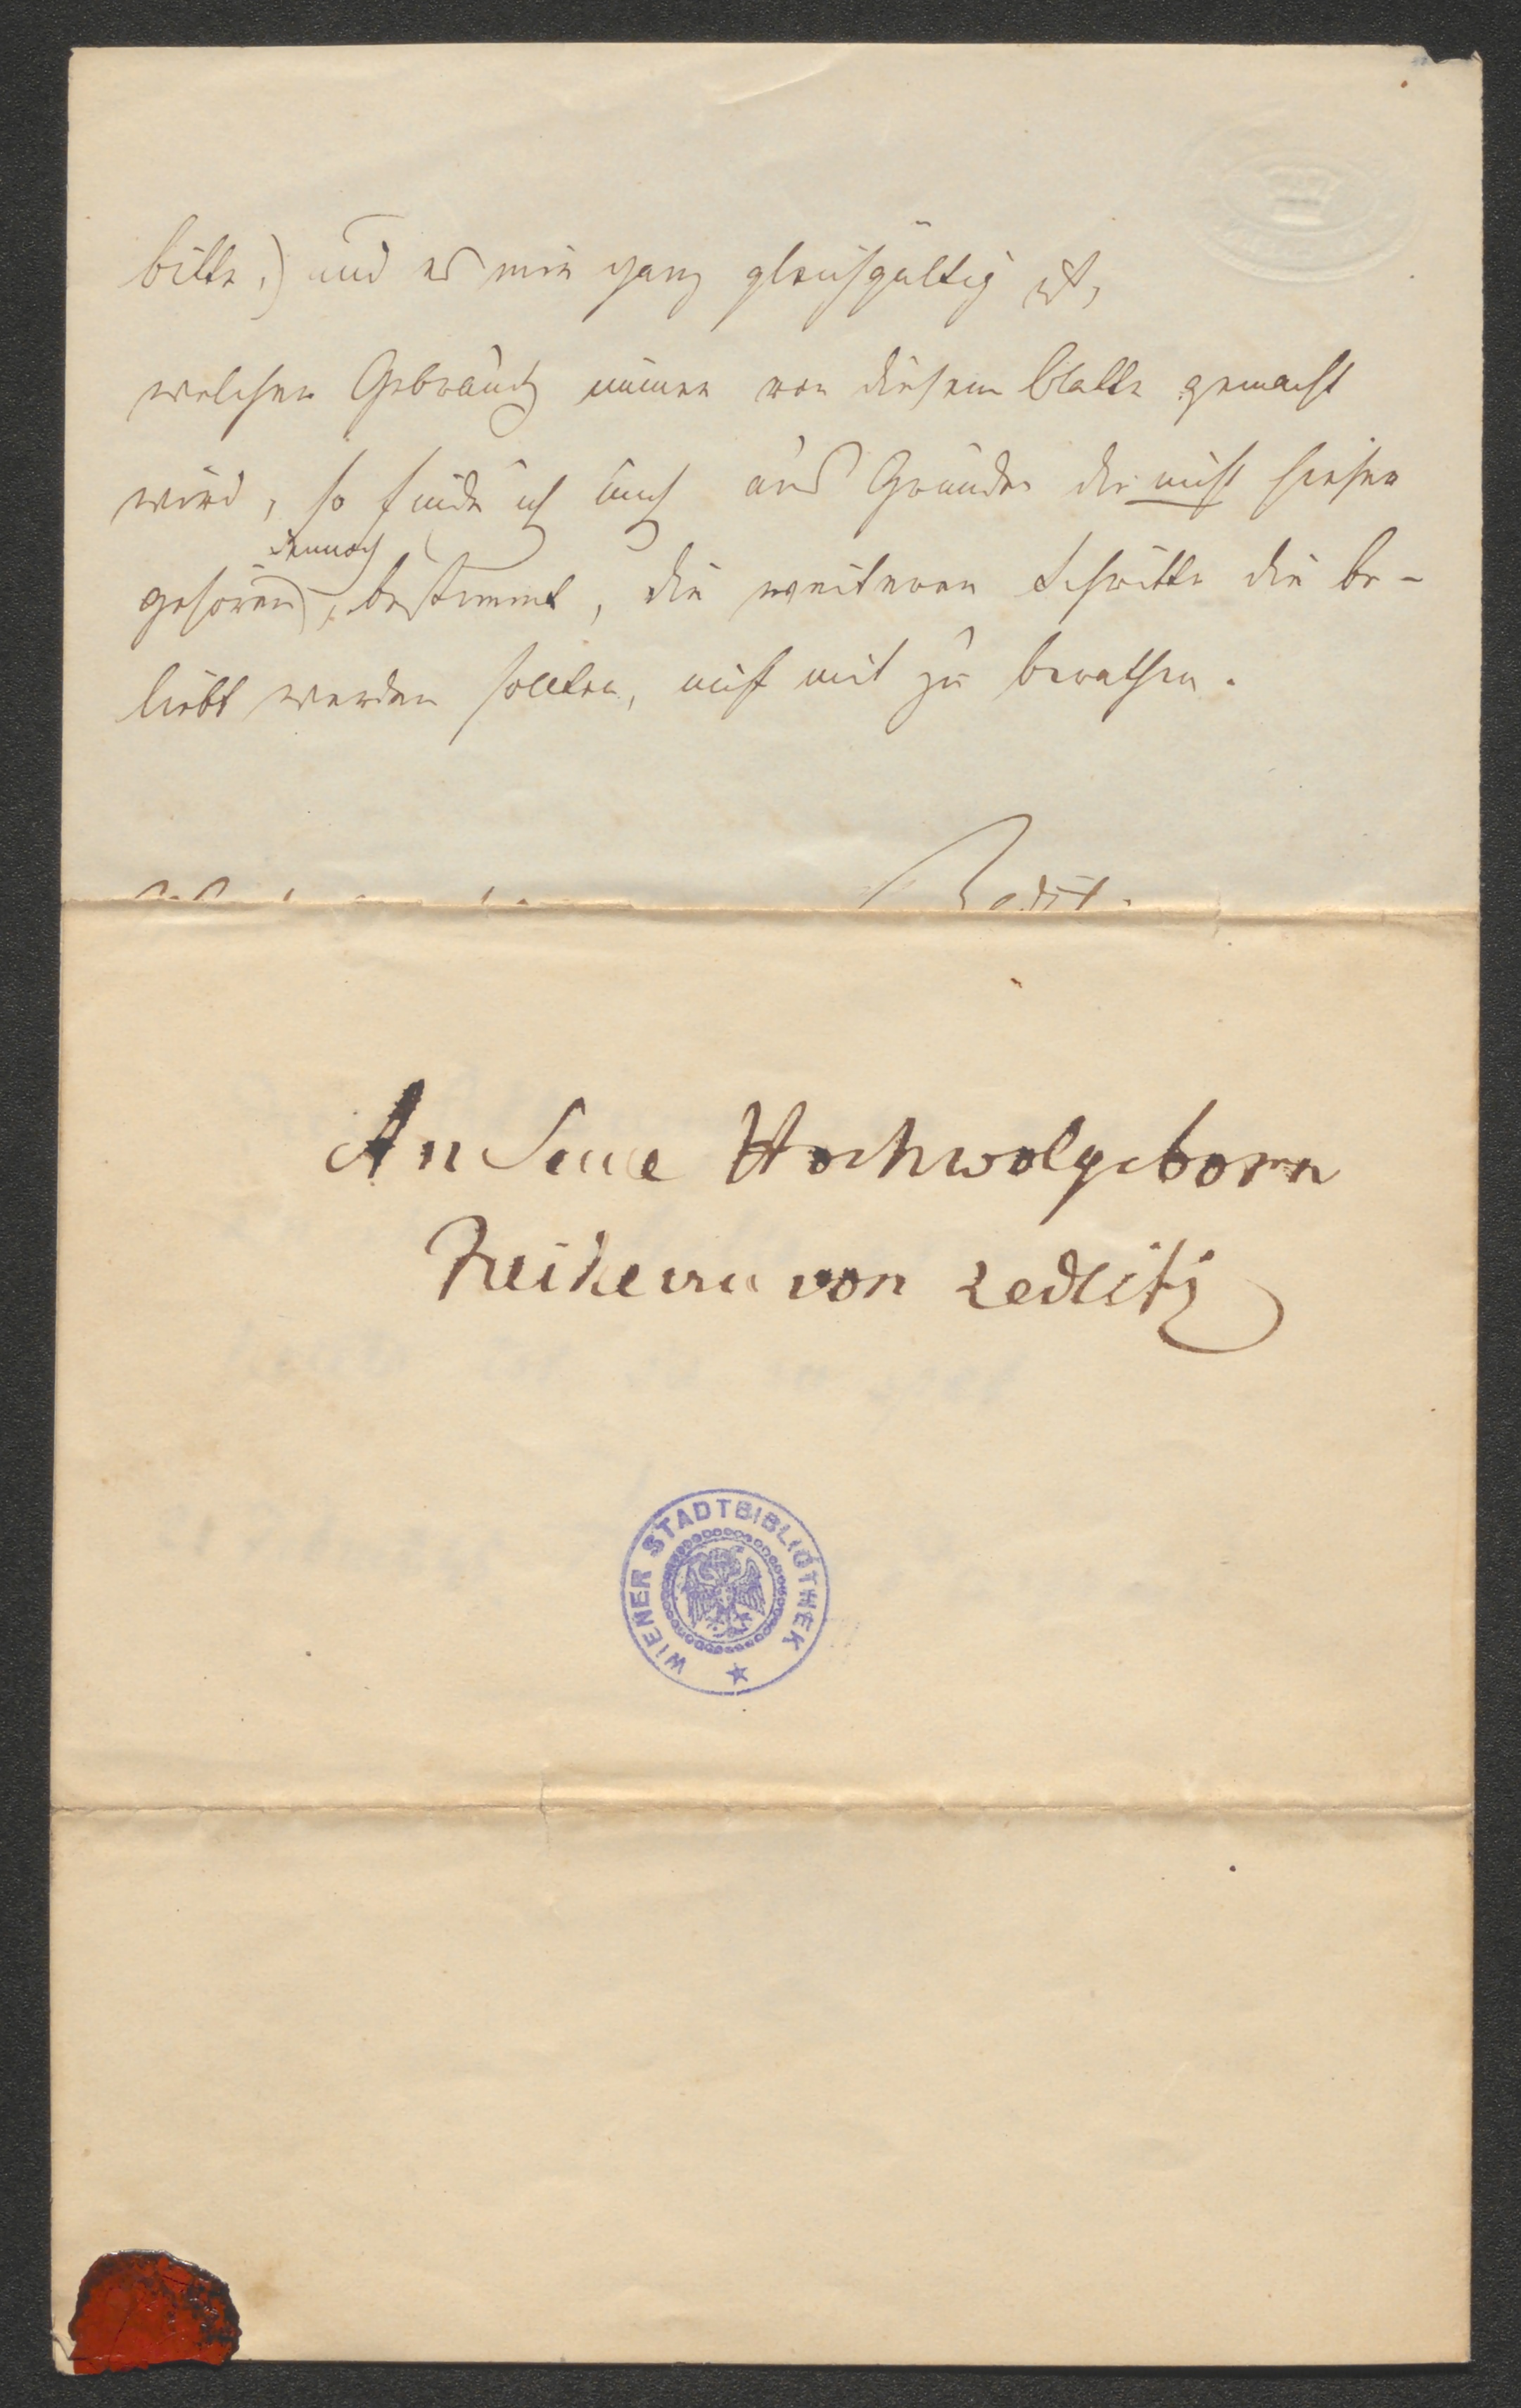 bitte,) und es mir ganz gleichgültig ist,
welcher Gebrauch immer von diesem Blatte gemacht
wird, so finde ich mich aus Gründen die nicht hieher
dennoch
gehören, bestimmt, die weiteren Schritte die be-
liebt werden sollten, nicht mit zu berathen.
An Seine Hochwolgeborn
Freiherrn von Zedlitz
WIENER STADTBIBLIOTHEK